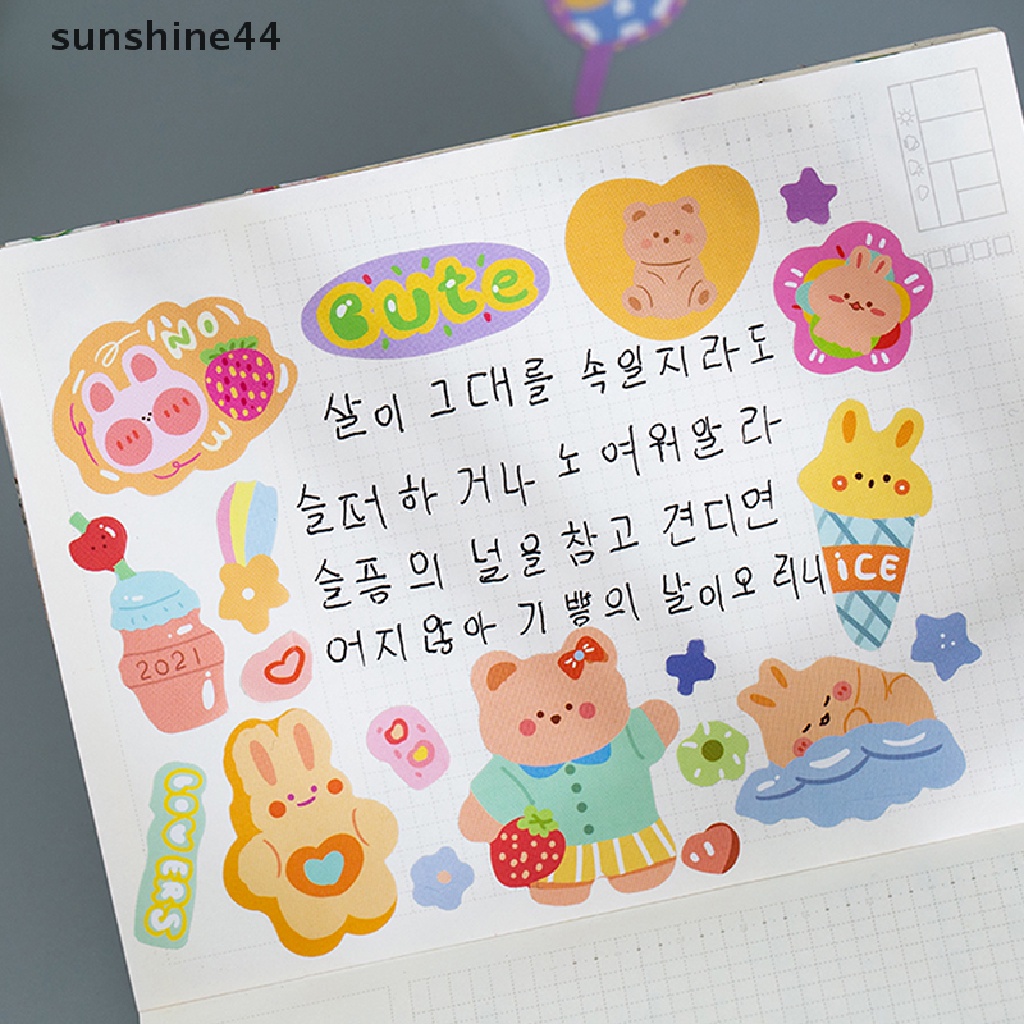 sunshine44
NO
Cute
살이 그대를 속일지라도
슬퍼하 거나 노 여워말 라
슬픔의 널을 참고 견디면
어지않아 기쁨의 날이오 리니
ICE
2021